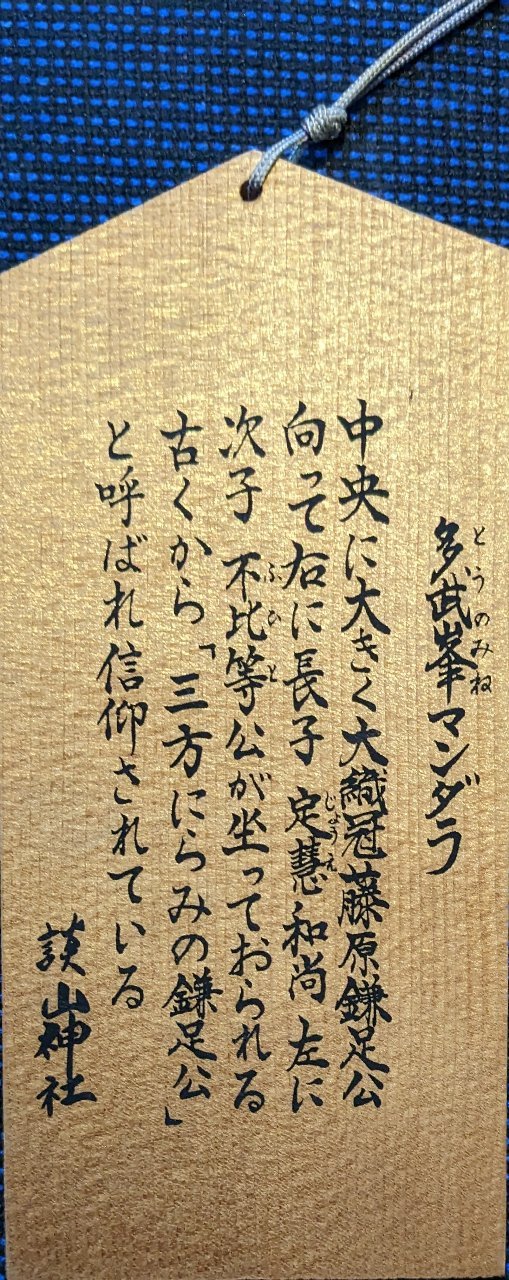 多武峯マンダラ
とうのみね
中央に大きく大織冠藤原鎌足公
向って右に長子 定慧和尚 左に
じょうえ
次子 不比等公が坐っておられる
ふひと
古くから「三方にらみの鎌足公」
と呼ばれ信仰されている
談山神社